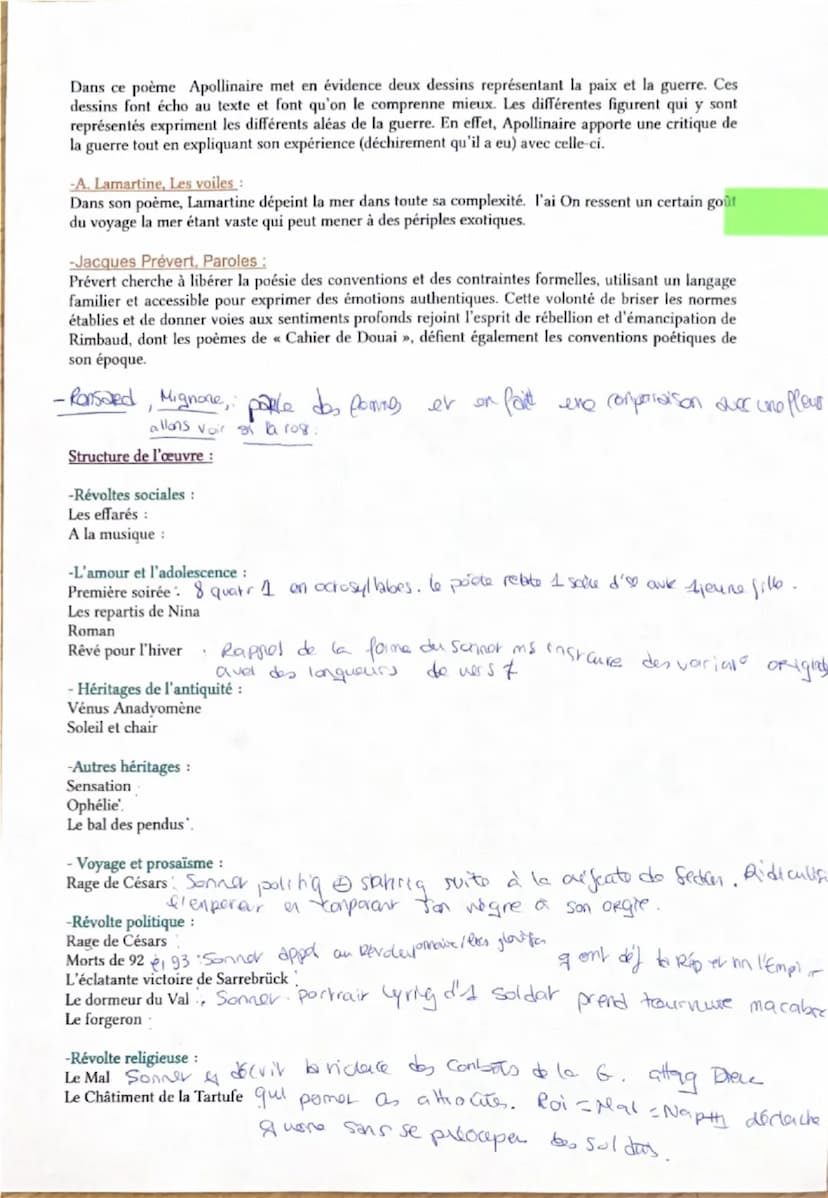 Dans ce poème Apollinaire met en évidence deux dessins représentant la paix et la guerre. Ces
dessins font écho au texte et font qu'on le comprenne mieux. Les différentes figurent qui y sont
représentés expriment les différents aléas de la guerre. En effet, Apollinaire apporte une critique de
la guerre tout en expliquant son expérience (déchirement qu'il a eu) avec celle-ci.
-A. Lamartine, Les voiles :
Dans son poème, Lamartine dépeint la mer dans toute sa complexité. l'ai On ressent un certain goût
du voyage la mer étant vaste qui peut mener à des périples exotiques.
-Jacques Prévert, Paroles :
Prévert cherche à libérer la poésie des conventions et des contraintes formelles, utilisant un langage
familier et accessible pour exprimer des émotions authentiques. Cette volonté de briser les normes
établies et de donner voies aux sentiments profonds rejoint l'esprit de rébellion et d'émancipation de
Rimbaud, dont les poèmes de « Cahier de Douai », défient également les conventions poétiques de
son époque.
- Ronsard, Mignone, : parle des femmes et en fait une comparaison avec une fleur
allons voir si la rose.
Structure de l'œuvre :
-Révoltes sociales :
Les effarés :
A la musique :
-L'amour et l'adolescence :
Première soirée : 8 quatr 1 en octosyllabes. le poète relate 1 scène d'∞ avec 1 jeune fille.
Les repartis de Nina
Roman
Rêvé pour l'hiver . Rappel de la forme du sonnet ms instaure des
avec des longueurs de vers ≠
- Héritages de l'antiquité :
Vénus Anadyomène
Soleil et chair
-Autres héritages :
Sensation
Ophélie
Le bal des pendus
- Voyage et prosaïsme :
Rage de Césars : Sonnet politiq ⊕ satiriq suite à la de Sedan. Ridiculis
l'empereur en comparant son règne à son orgie.
-Révolte politique :
Rage de Césars
Morts de 92 et 93 : Sonnet appel au q ont déf la Rép et nn l'Empi
L'éclatante victoire de Sarrebrück :
Le dormeur du Val : Sonnet. portrait lyriq d'1 soldat prend tournure macabre
Le forgeron
-Révolte religieuse :
Le Mal Sonnet q décrit la violence des combats de la G. attaq Dieu
Le Châtiment de la Tartufe qui permet ces atrocités. Roi = Mal = Nap III déclache
guerre sans se préocuper des soldats.